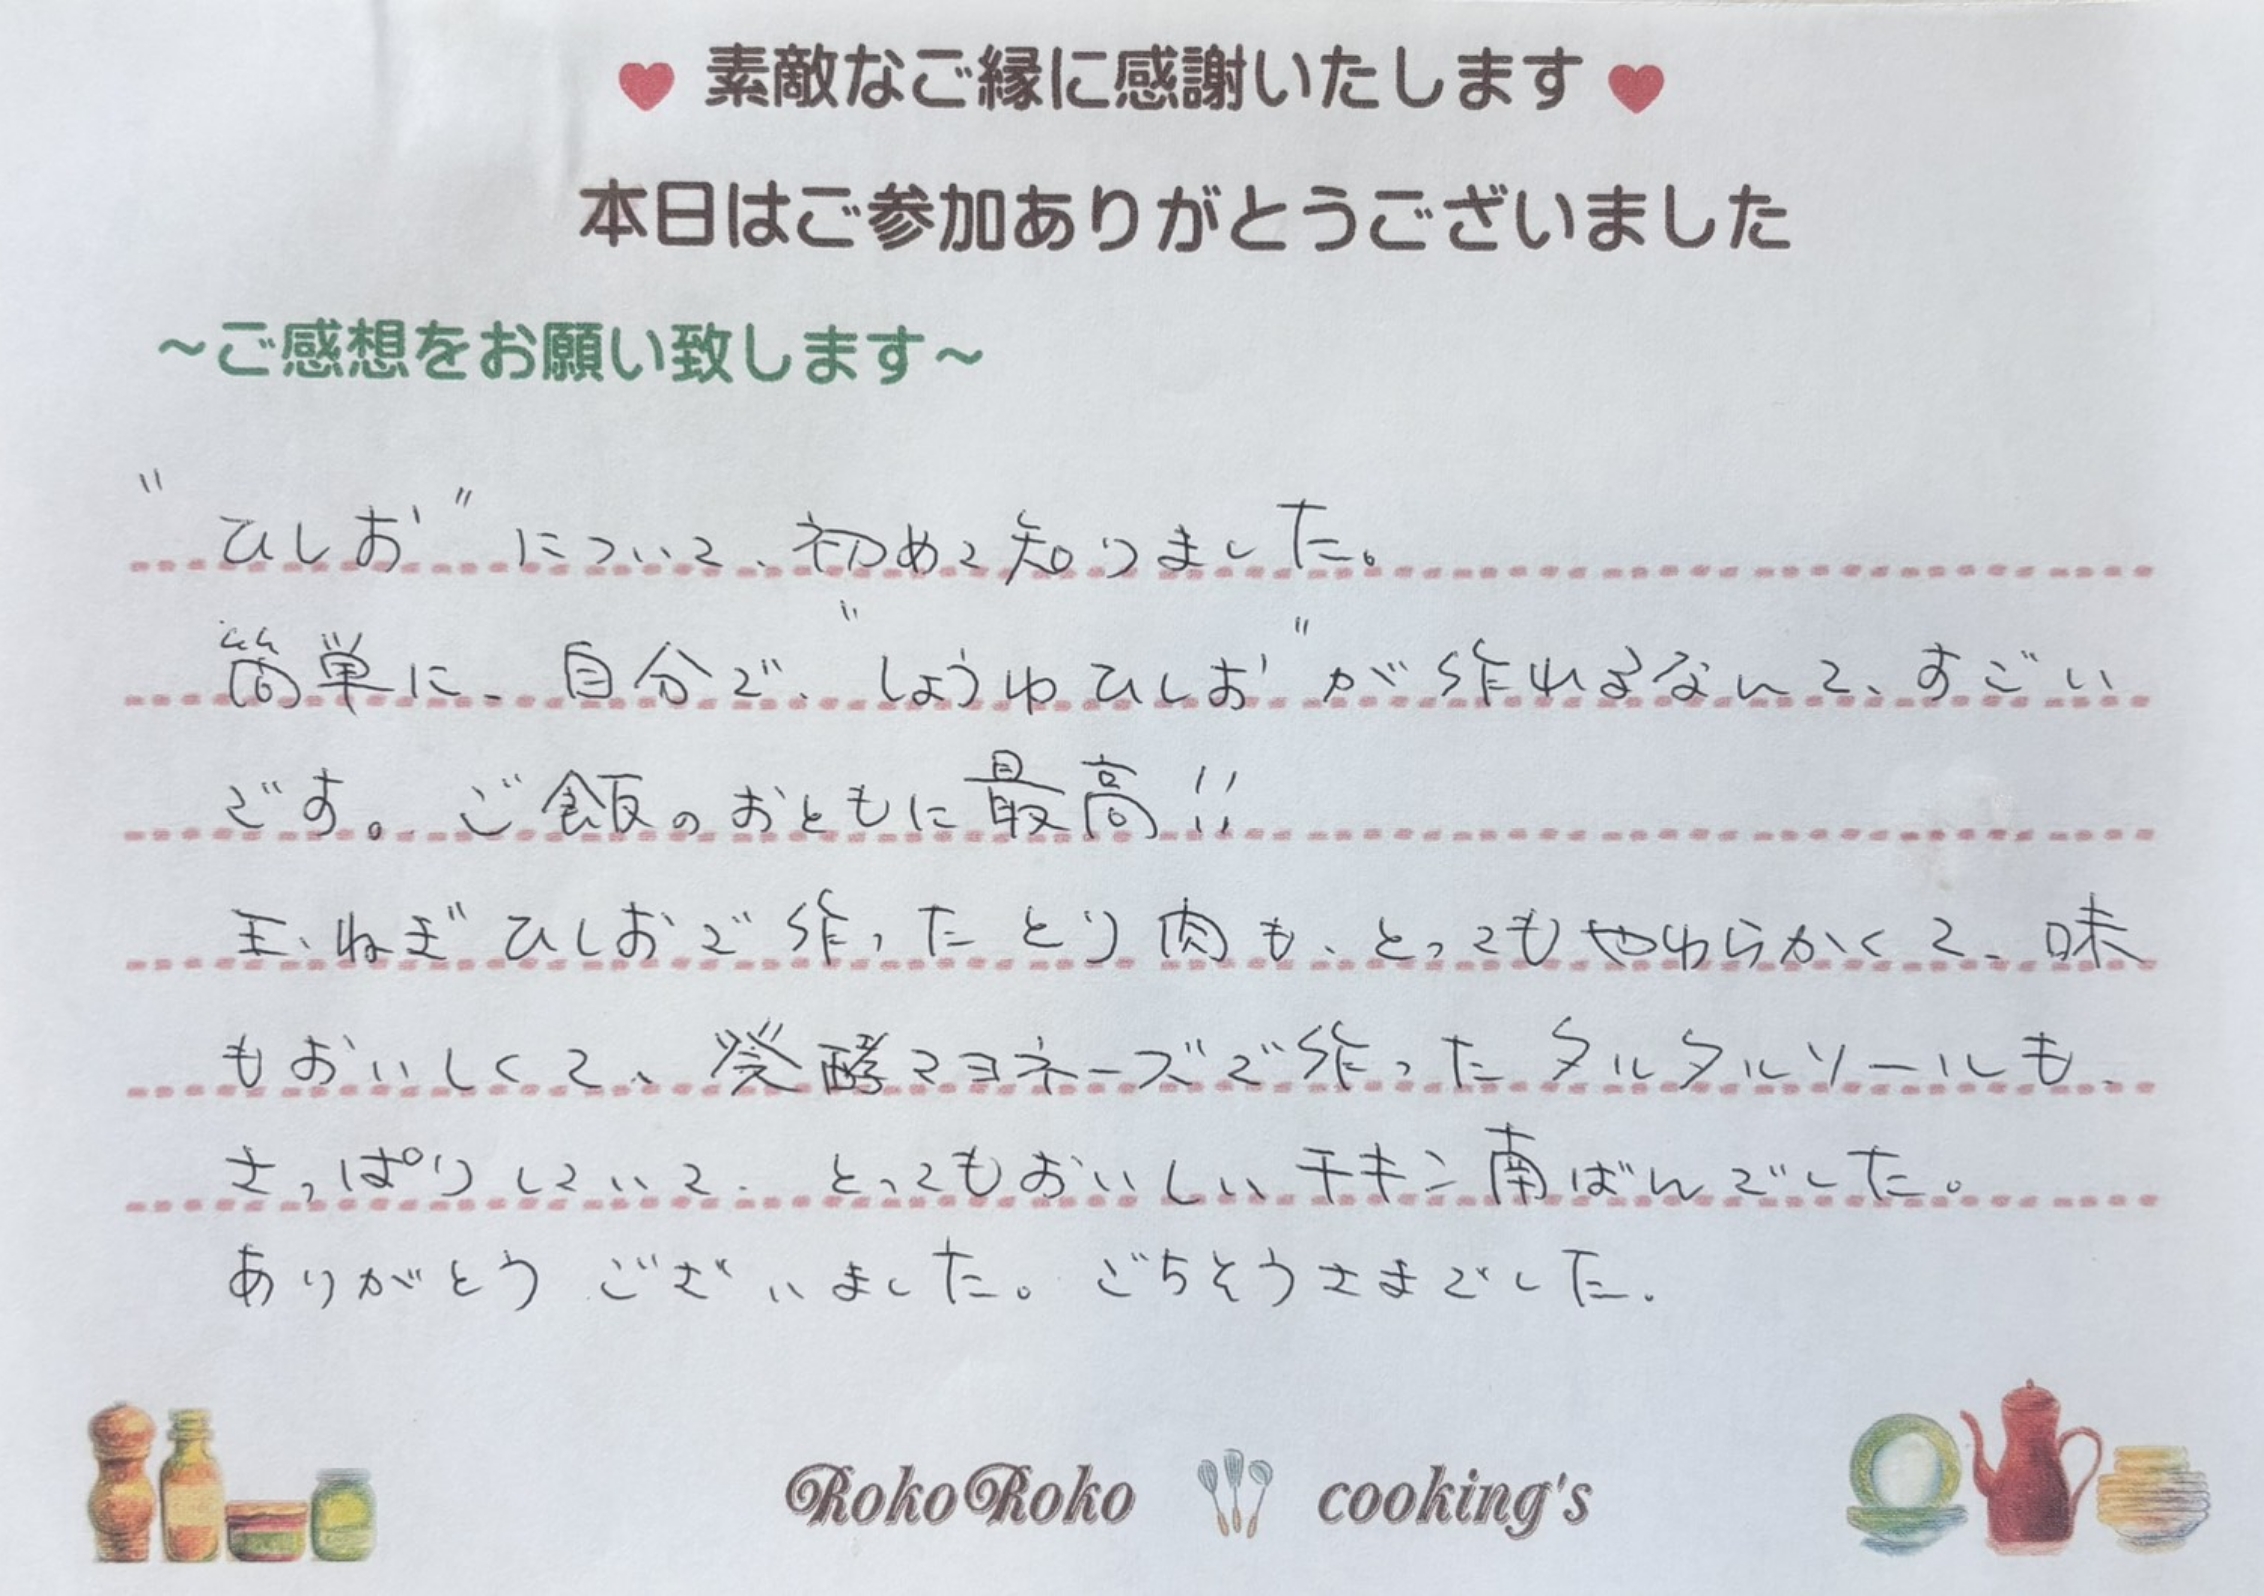 ♥ 素敵なご縁に感謝いたします ♥
本日はご参加ありがとうございました
～ご感想をお願い致します～
"ひしお"について、初めて知りました。
簡単に、自分で、"しょうゆひしお"が作れるなんて、すごい
です。ご飯のおともに最高!!
玉ねぎひしおで作ったとり肉も、とってもやわらかくて、味
もおいしくて、発酵マヨネーズで作ったタルタルソールも、
さっぱりしていて、とってもおいしいチキン南ばんでした。
ありがとうございました。ごちそうさまでした.
RokoRoko cooking's